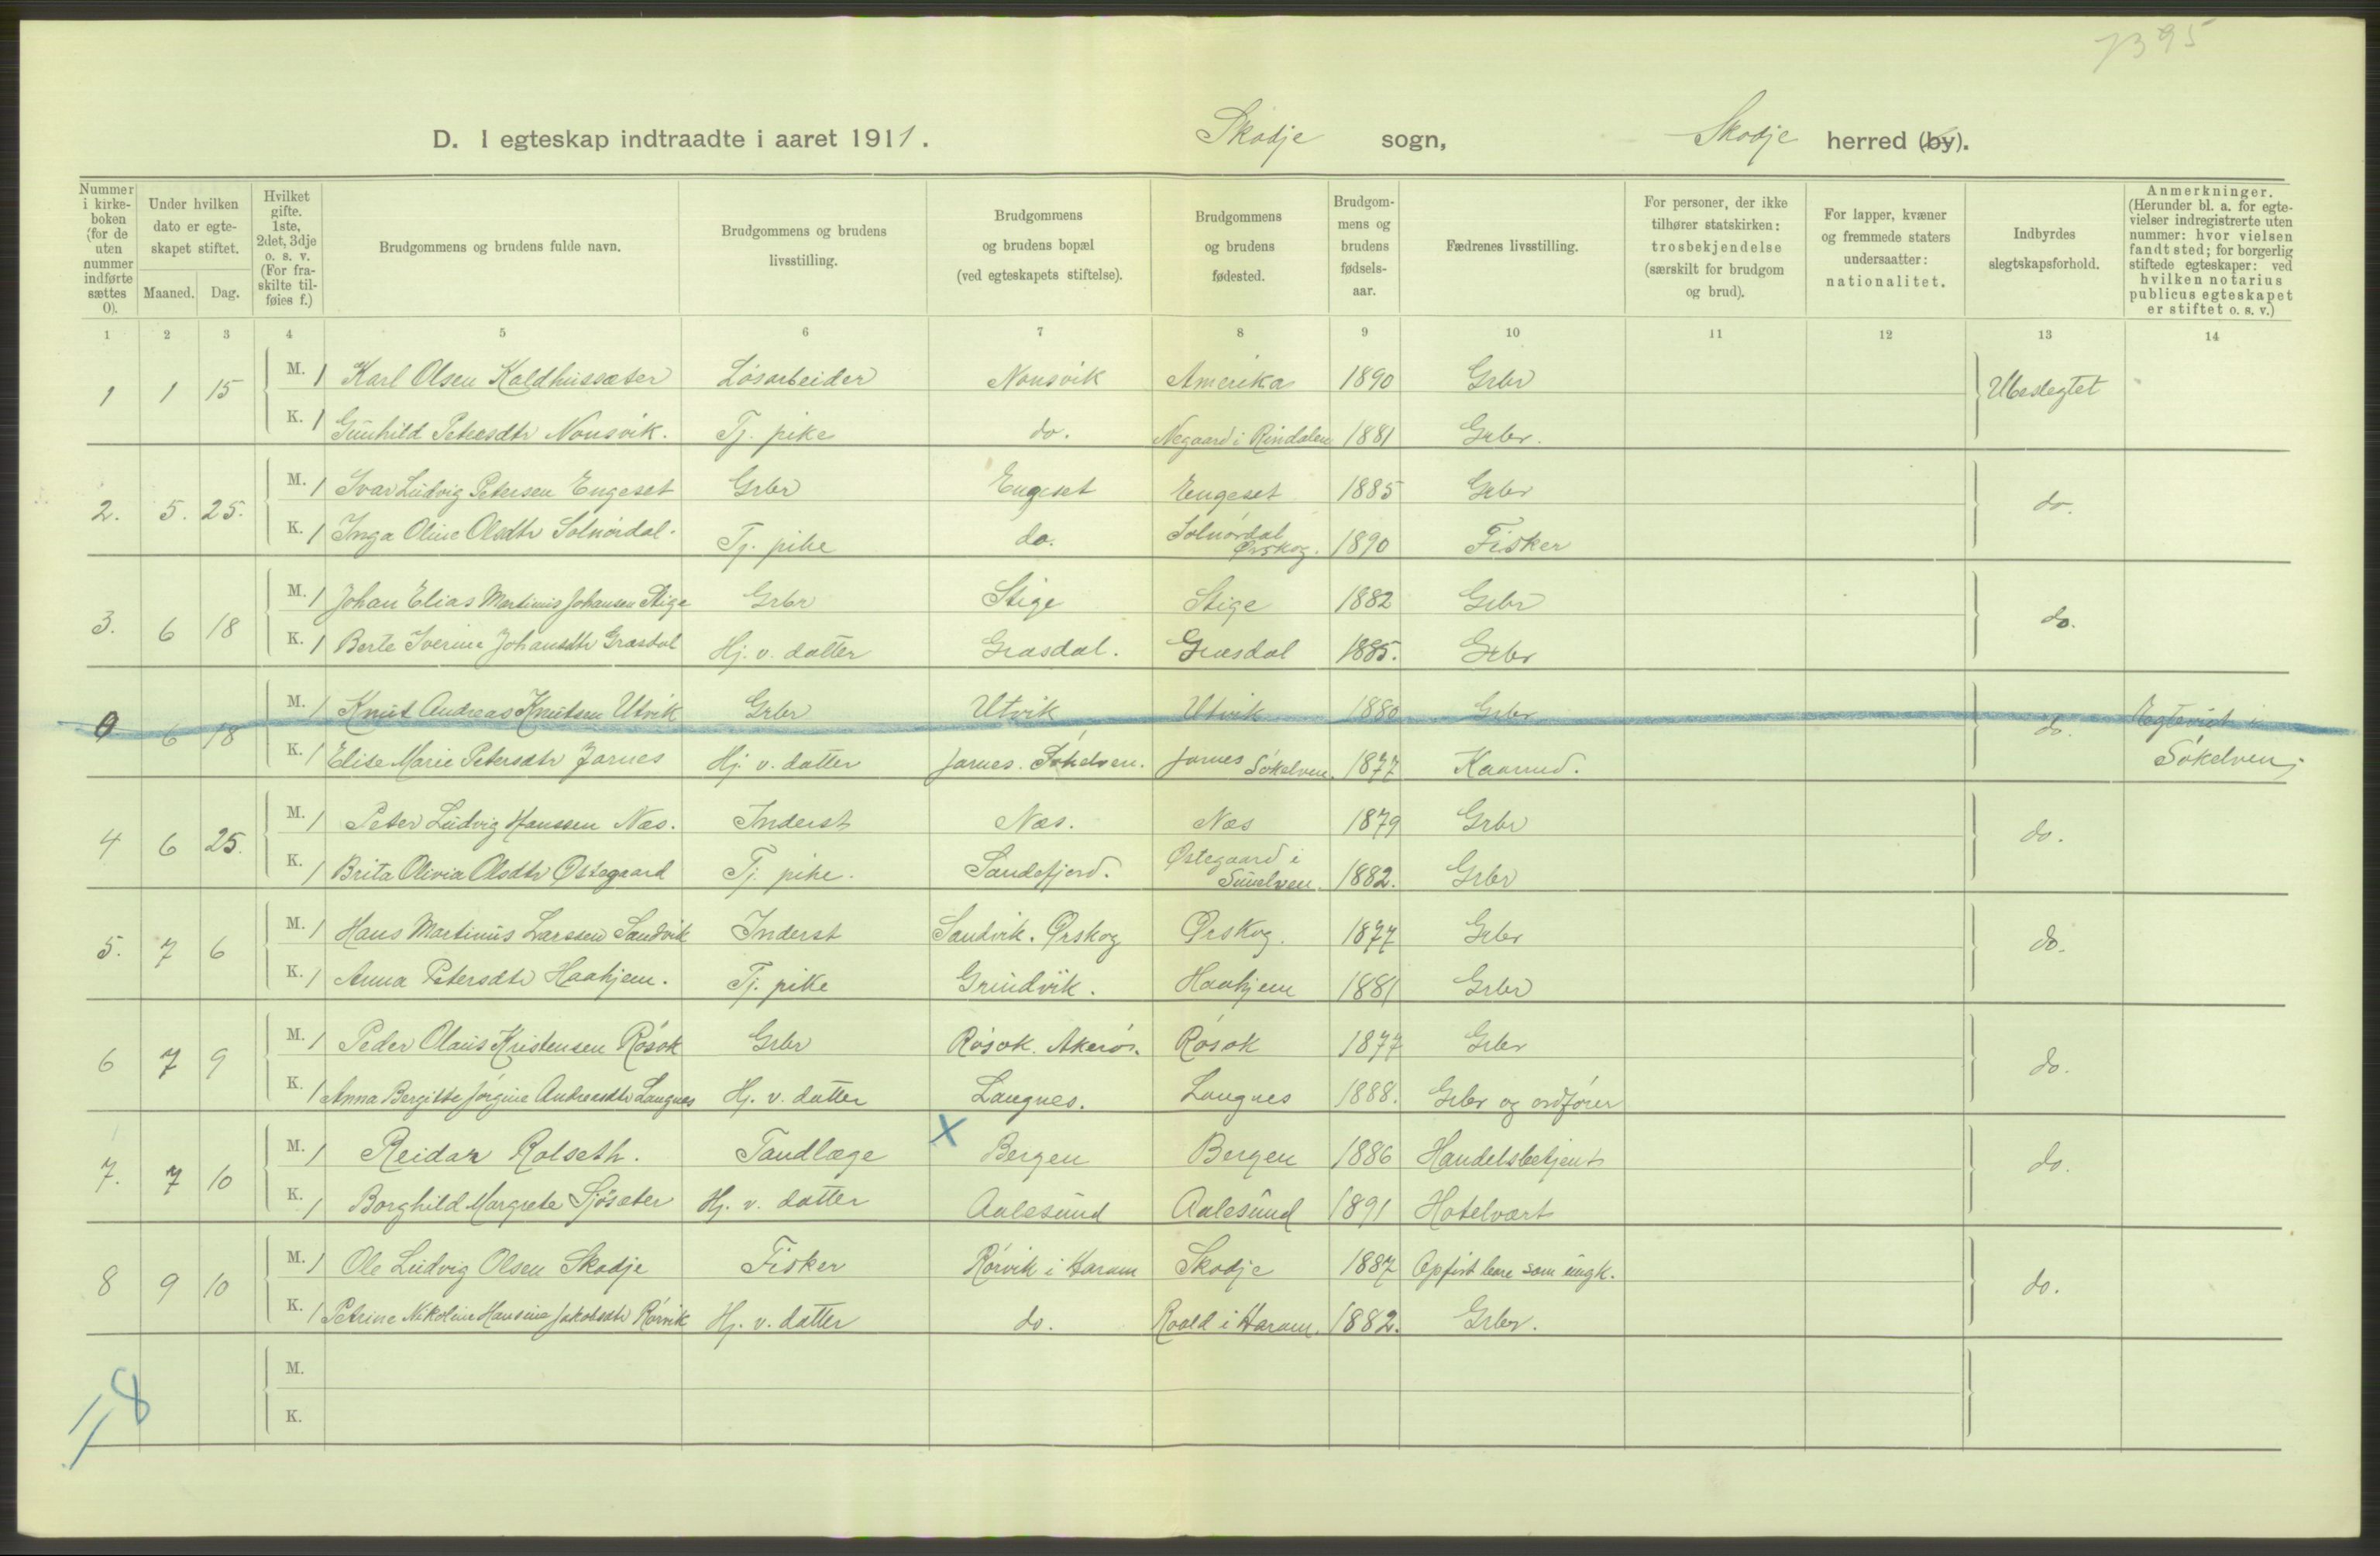 7395
D. I egteskap indtraadte i aaret 1911. Skodje sogn, Skodje herred (by).
Nummer i kirke- boken (for de uten nummer indførte sættes 0). Under hvilken dato er egte- skapet stiftet. Maaned. Dag. Hvilket gifte. 1ste, 2det, 3dje o. s. v. (For fra- skilte til- føies f.) Brudgommens og brudens fulde navn. Brudgommens og brudens livsstilling. Brudgommens og brudens bopæl (ved egteskapets stiftelse). Brudgommens og brudens fødested. Brudgom- mens og brudens fødsels- aar. Fædrenes livsstilling. For personer, der ikke tilhører statskirken: trosbekjendelse (særskilt for brudgom og brud). For lapper, kvæner og fremmede staters undersaatter: nationalitet. Indbyrdes slegtskapsforhold. Anmerkninger. (Herunder bl. a. for egte- vielser indregistrerte uten nummer: hvor vielsen fandt sted; for borgerlig stiftede egteskaper: ved hvilken notarius publicus egteskapet er stiftet o. s. v.)
1 2 3 4 5 6 7 8 9 10 11 12 13 14
1 1 15 M. 1 Karl Olsen Koldhussæter Løsarbeider Nonsvik Amerika 1890 Grbr Ubeslegtet
K. 1 Gunhild Petersdtr Nonsvik. Tj. pike do. Negaard i Rindalen 1881 Grbr.
2. 5. 25. M. 1 Ivar Ludvig Petersen Engeset Grbr Engeset Engeset 1885 Grbr do.
K. 1 Inga Oline Olsdtr Solnørdal. Tj. pike do. Solnørdal Ørskog. 1890 Fisker
3. 6 18 M. 1 Johan Elias Martinus Johansen Stige Grbr Stige Stige 1882 Grbr do.
K. 1 Berte Iverine Johansdtr Grasdal Hj. v. datter Grasdal. Grasdal 1885. Grbr
0 6 18 M. 1 Knut Andreas Knutsen Utvik Grbr Utvik Utvik 1880 Grbr do. Egteviet i
K. 1 Elise Marie Petersdtr Jarnes Hj. v. datter Jarnes. Søkelven. Jarnes Søkelven. 1877 Kaarmd. Søkelven.
4 6 25. M. 1 Peter Ludvig Hanssen Næs. Inderst Næs. Næs 1879 Grbr do.
K. 1 Brita Olivia Olsdtr Østegaard Tj. pike. Sandefjord. Østegaard i Sunelven. 1882. Grbr
5. 7 6 M. 1 Hans Martinus Larssen Sandvik Inderst Sandvik. Ørskog Ørskog. 1877 Grbr do.
K. 1 Anna Petersdtr Haahjem. Tj. pike Grindvik. Haahjem 1881 Grbr
6 7 9 M. 1 Peder Olaus Kristensen Røsok Grbr Røsok. Akerø. Røsok 1877 Grbr do.
K. 1 Anna Bergitte Jørgine Andreasdtr Langnes Hj. v. datter Langnes. Langnes 1888. Grbr og ordfører
7. 7 10 M. 1 Reidar Rolseth. Tandlæge X Bergen Bergen 1886 Handelsbetjent do.
K. 1 Borghild Margrete Sjøsæter Hj. v. datter Aalesund Aalesund 1891 Hotelvært
8 9 10 M. 1 Ole Ludvig Olsen Skodje Fisker Rørvik i Haram Skodje 1887 do.
K. 1 Petrine Nikoline Hansine Jakobsdtr Rørvik Hj. v. datter do. Roald i Haram. 1882. Grbr.
M.
K.
8